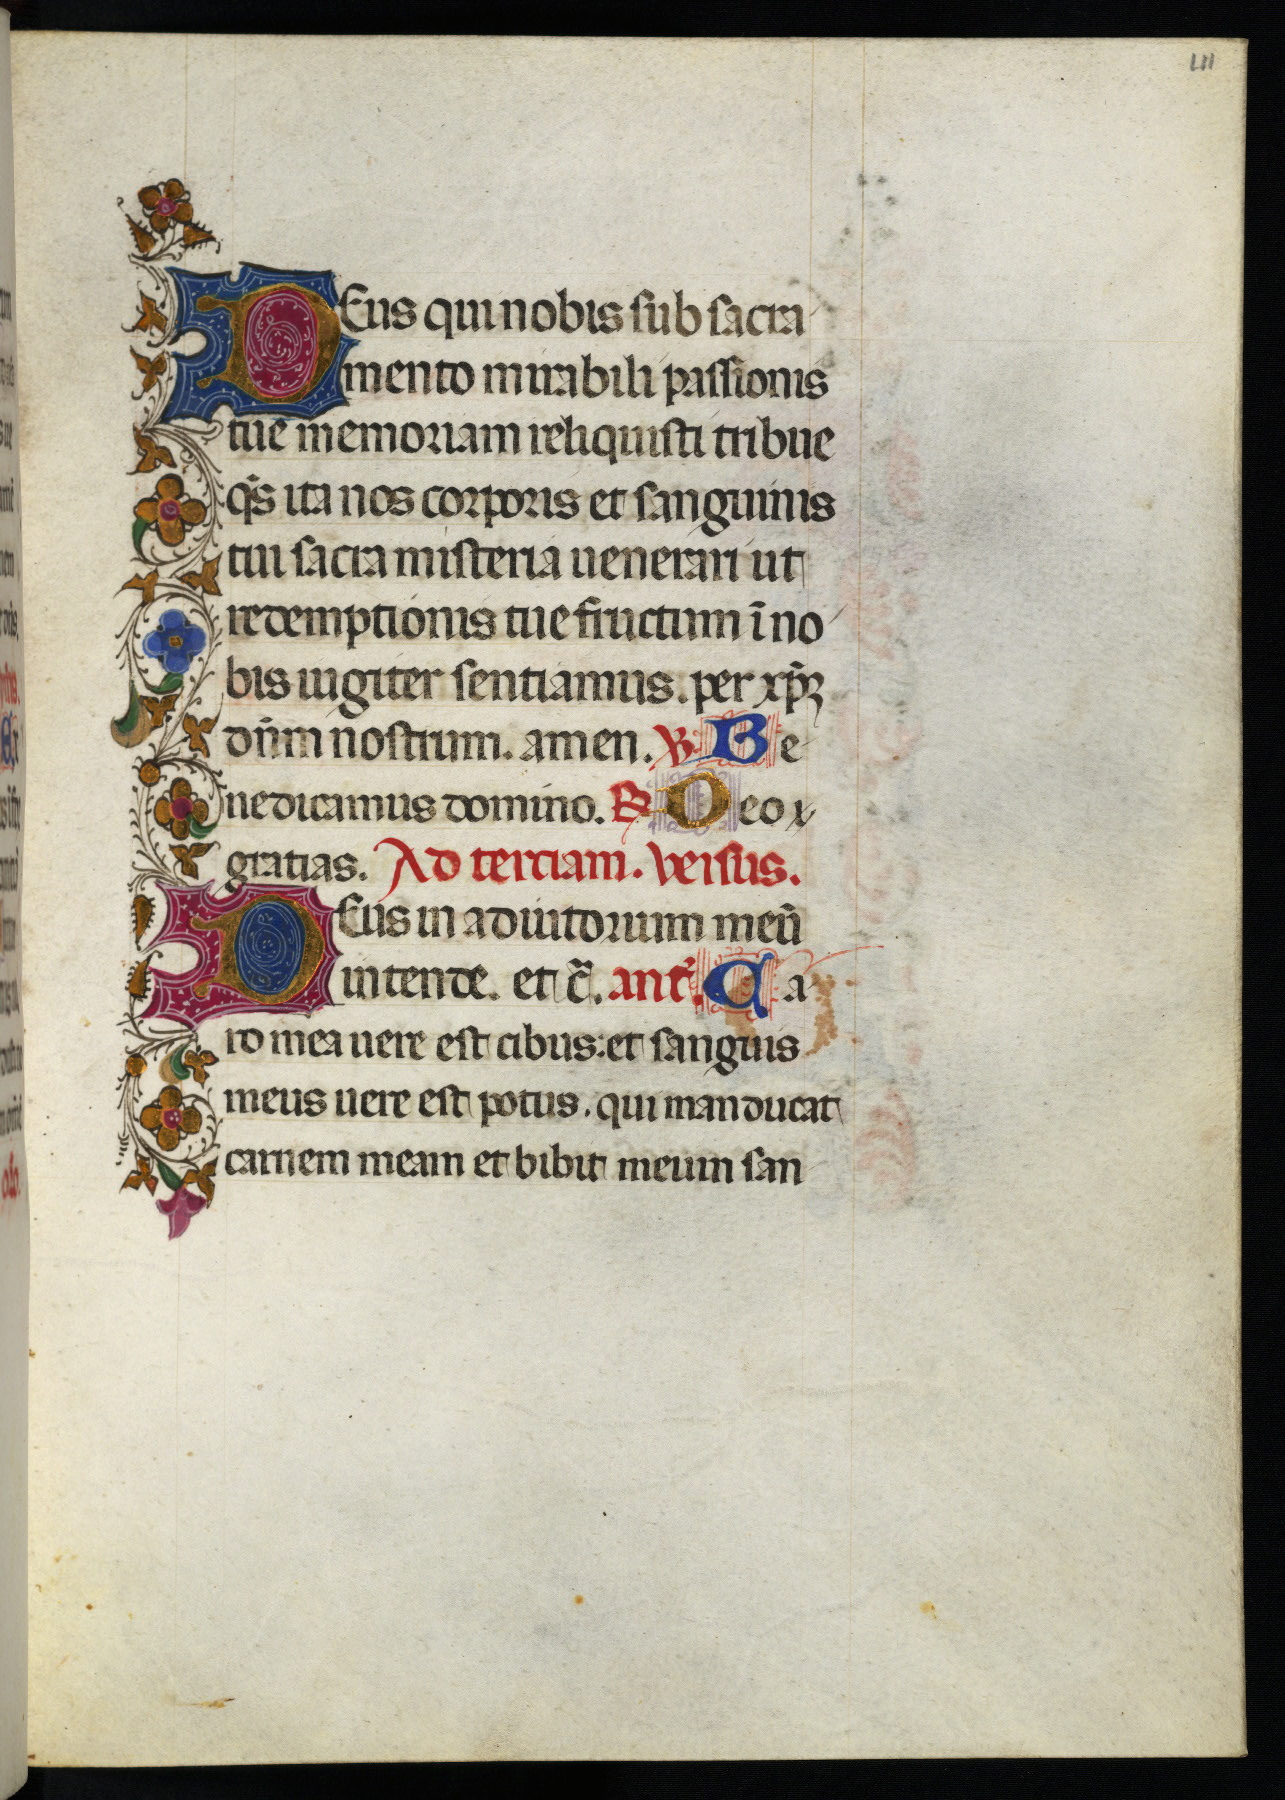 LII
DEus qui nobis sub sacra
mento mirabili passionis
tue memoriam reliquisti tribue
qs̄ ita nos corporis et sanguinis
tui sacra misteria uenerari ut
redemptionis tue fructum ī no
bis iugiter sentiamus. per xp̄ꝫ
dn̄m nostrum. amen. ℣. Be
nedicamus domino. ℟. Deo
gratias. Ad terciam. versus.
DEus in adiutorium meū
intende. et c̄. ant̄. Ca
ro mea uere est cibus: et sanguis
meus uere est potus. qui manducat
carnem meam et bibit meum san